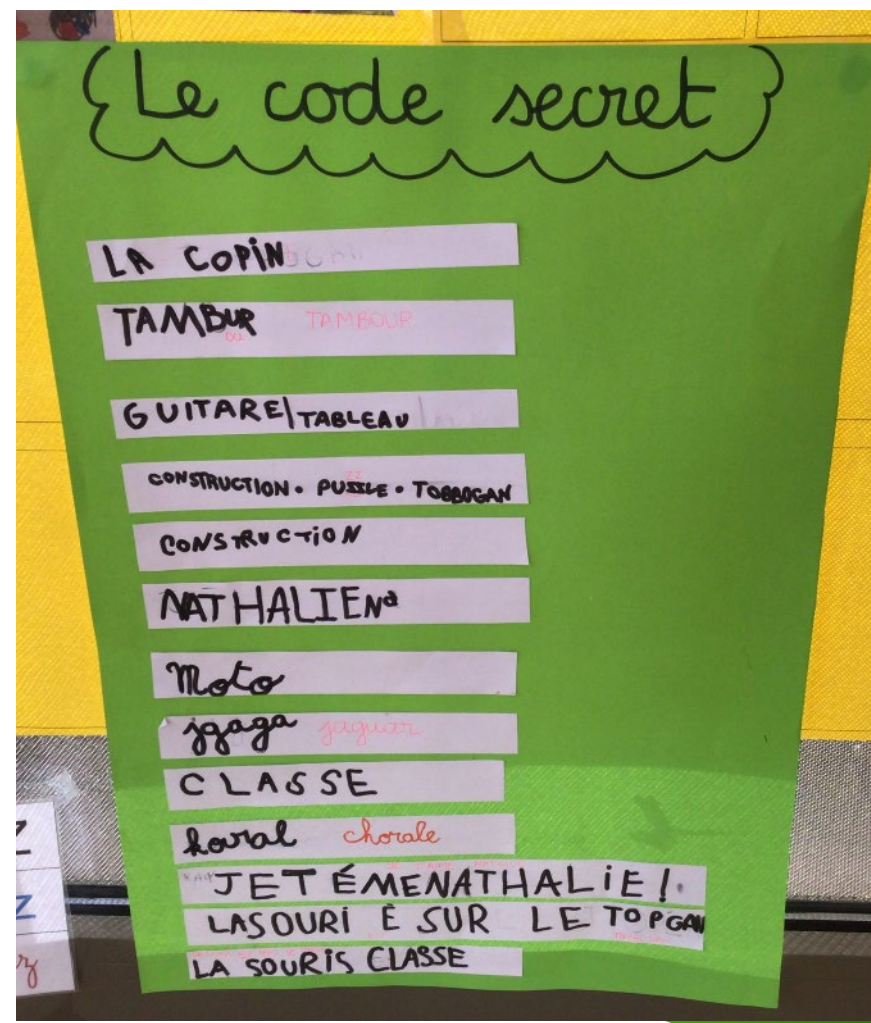 Le code secret
LA COPIN
TAMBUR TAMBOUR
ou
GUITARE/TABLEAU
CONSTRUCTION • PUZZLE • TOBBOGAN
CONSTRUCTION
NATHALIE Na
Moto
jgaga jaguar
CLASSE
koral chorale
JE T'AIME NATHALIE
JETÉMENATHALIE!
LASOURI È SUR LE TOPGAN
LA SOURIS CLASSE
Z
Z
z